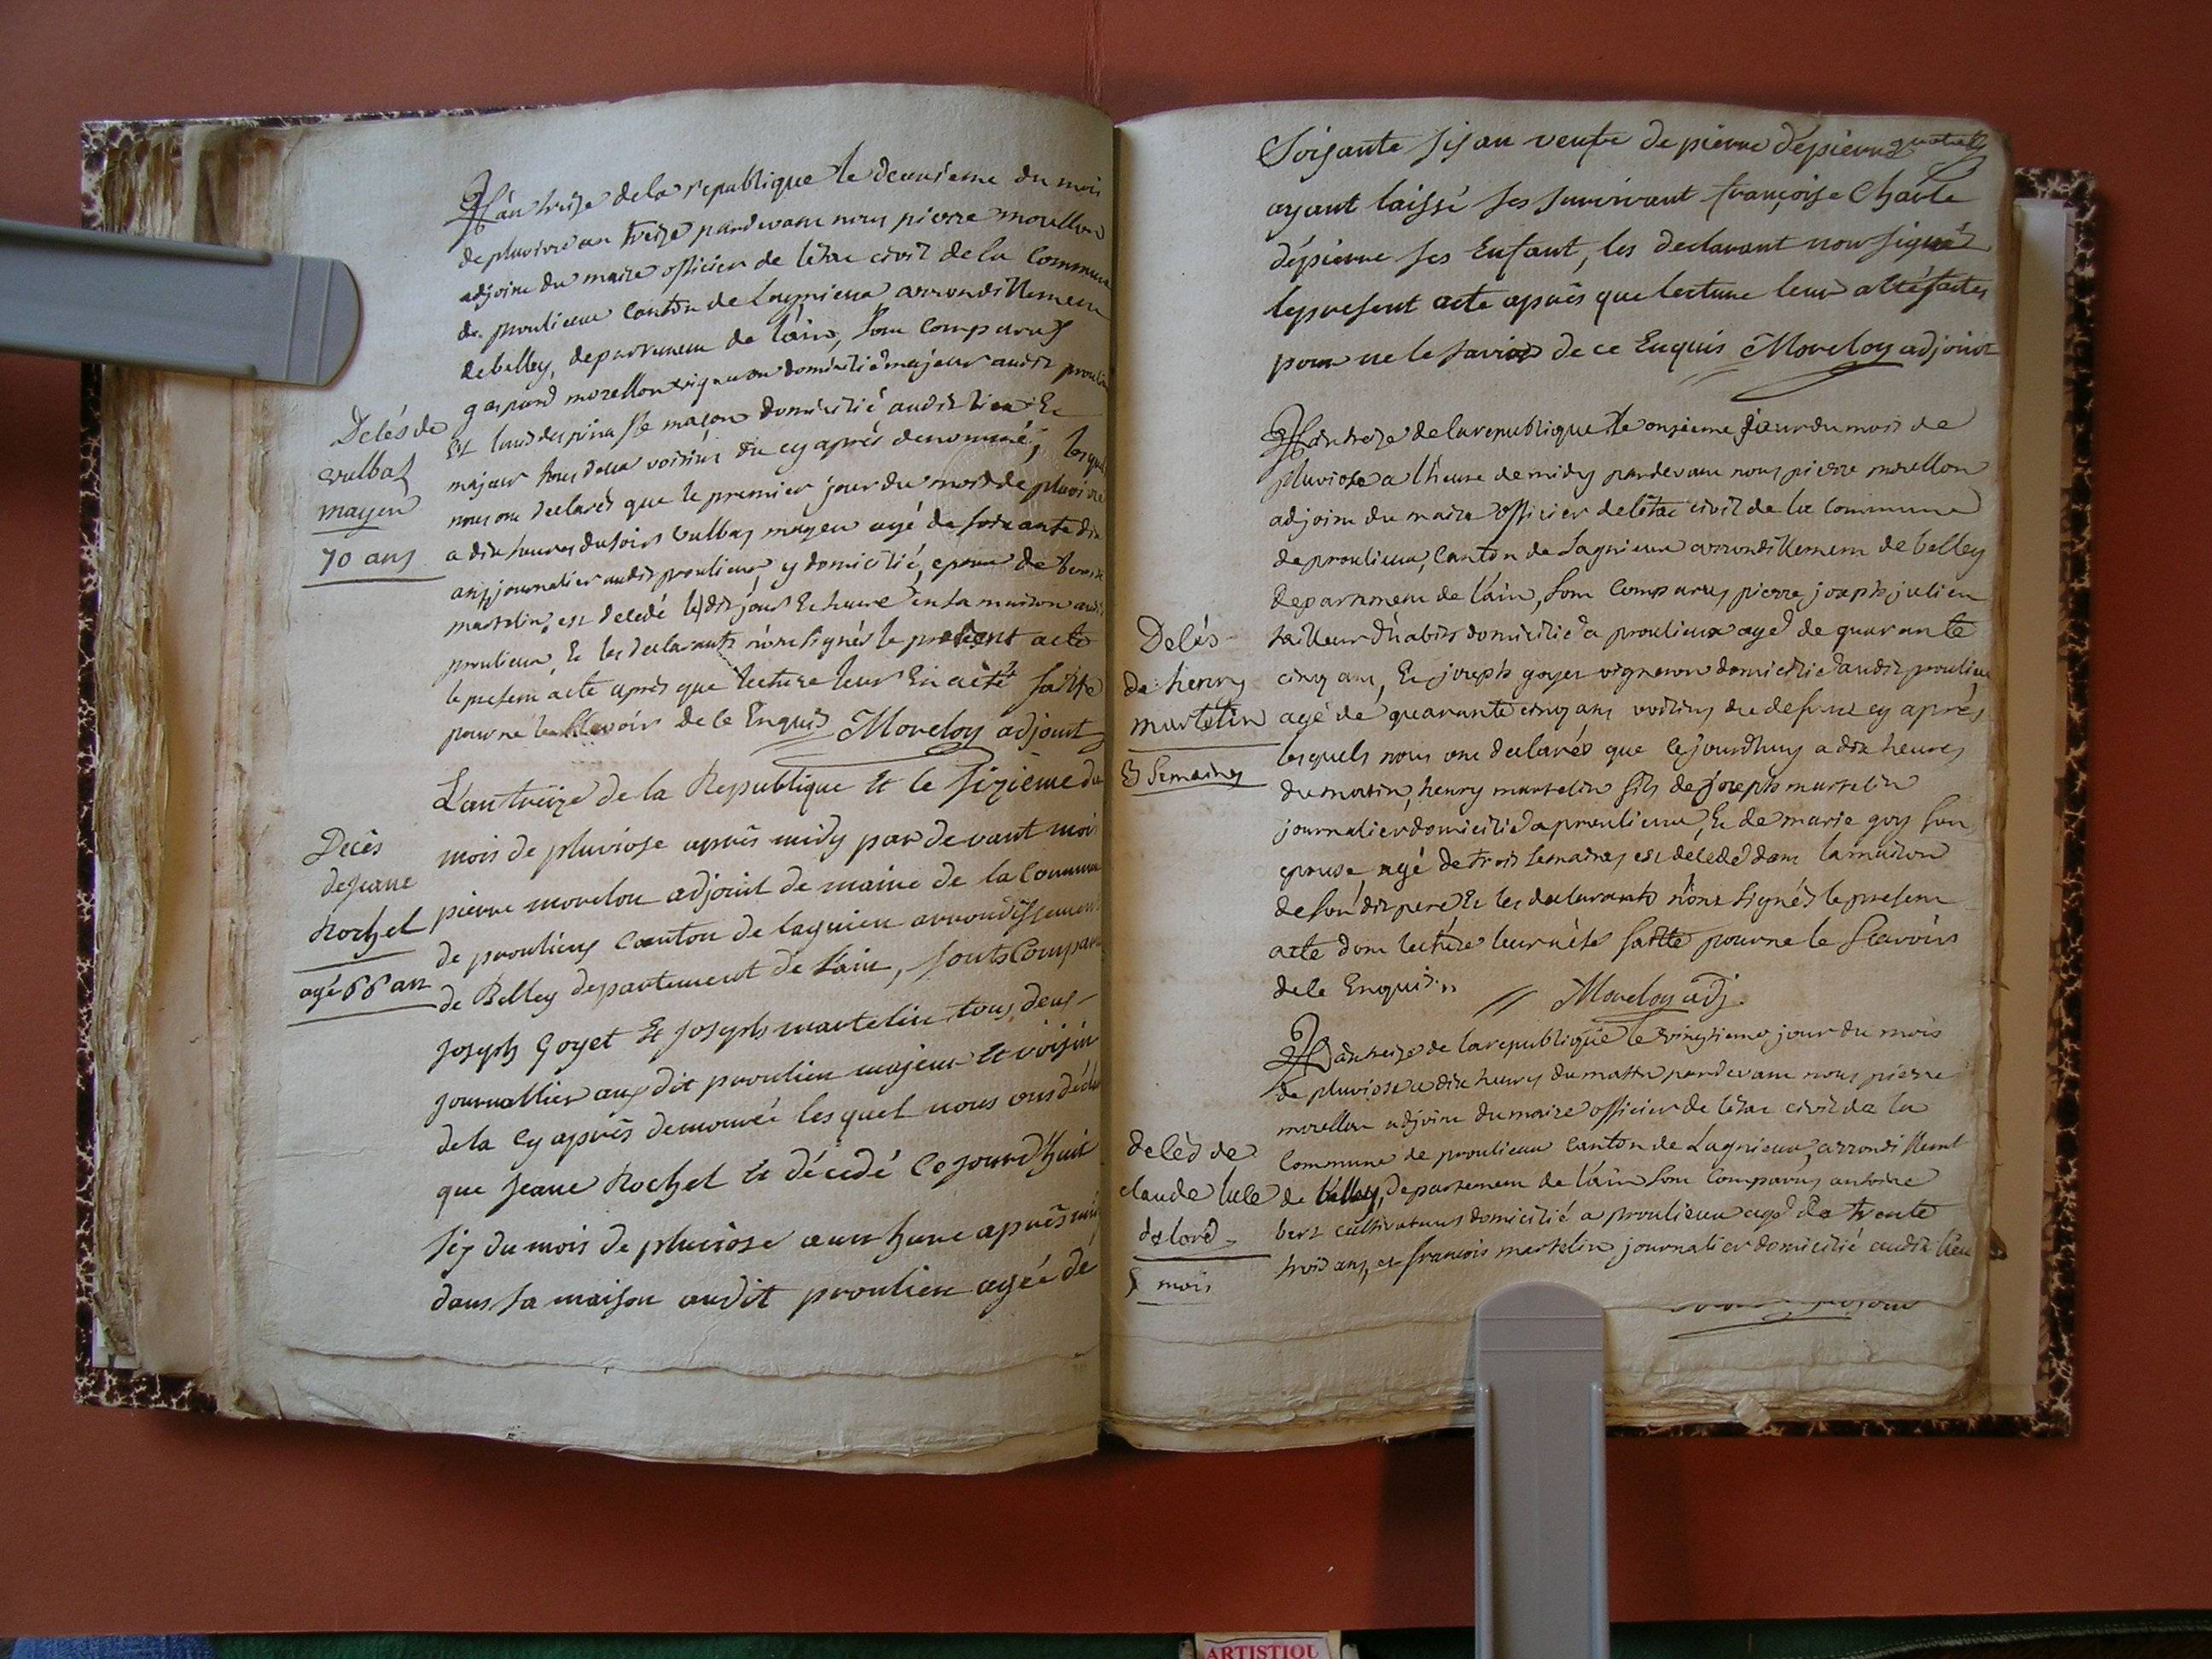 Décés de
vulbas
mayen
70 ans
L'an treize de la république le deuxieme du mois
de pluviose an treize pardevant nous pierre morellon
adjoint du maire officier de l'état civil de la Commune
de proulieux Canton de Lagnieux arrondissement
de belley, departement de l'ain, sont Comparus
gaspard morellon vigneron domicilié majeur audit proulieu
Et louis maçon domicilié audit lieu Et
majeur tous deux voisins du cy après denommé, lesquels
nous ont declarés que le premier jour du mois de pluviose
a dix heures du soir vulbas mayen agé de soixante dix
ans, journalier audit proulieux, y domicilié, epoux de benoite
martelin, est decedé lesdit jour Et heure en sa maison audit
proulieux, Et les declarants n'ont signés le present acte
le present acte après que lecture leur En a été faitte
pour ne le scavoir de ce Enquis Moreloy adjoint
Décès
de jeane
Rochet
agé 66 an
L'an treize de la Republique Et le sizième du
mois de pluviose après midy par devant moi
pierre morelon adjoint de maire de la Commune
de proulieux Canton de lagnieu arrondissement
de Belley departement de l'ain, sonts Comparu
Joseph Goyet Et Joseph martelin tous deux
journallier aux dit proulieu majeur Et voisin
de la cy après denomée les quel nous ons déclaré
que jeane Rochet Et décedé ce jourd'huit
six du mois de pluviose a une heure après midi
dans sa maison audit proulieu agée de
soisante six an veufve de pierre dépierre
ayant laissé ses survivant françoise Charle
dépierre ses Enfant, les declarant non signé
le present acte après que lecture leur a été faites
pour ne le savoir de ce Enquis Moreloy adjoint
Décés
de henry
martelin
3 Semaines
L'an treize de la republique le onzieme jour du mois de
pluviose a l'heure de midy pardevant nous pierre morellon
adjoint du maire officier de l'état civil de la Commune
de proulieux, Canton de Lagnieux arrondissement de belley
departement de l'ain, sont Comparus pierre joseph julien
tailleur d'habits domicilié a proulieux agé de quarante
cinq ans, Et joseph goyet vigneron domicilié audit proulieux
agé de quarante cinq ans voisins du defunt cy après,
lesquels nous ont declarés que cejourdhuy a dix heures
du matin, henry martelin fils de joseph martelin
journalier domicilié a proulieux, Et de marie goy son
epouse, agé de trois semaines est decedé dans la maison
de son dit pere Et les declarants n'ont signés le present
acte dont lecture leur a été faitte pour ne le scavoir
de ce Enquis. Moreloy adj.
décès de
claude luce
delord
5 mois
L'an treize de la republique le vingtieme jour du mois
de pluviose a dix heures du matin pardevant nous pierre
morellon adjoint du maire officier de l'état civil de la
Commune de proulieux Canton de Lagnieux, arrondissement
de belley, departement de l'ain sont Comparus antoine
bert cultivateurs domicilié a proulieux agé de trente
trois ans, et francois martelin journalier domicilié audit lieu